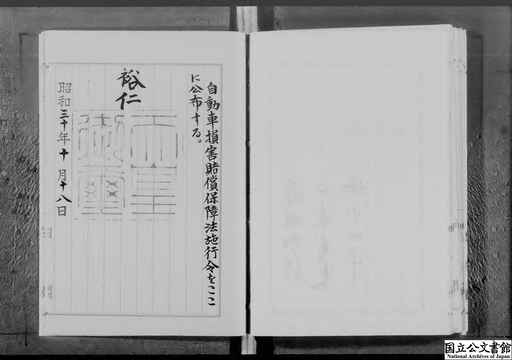 自動車損害賠償保障法施行令をここ
に公布する。
裕仁
天皇
御璽
昭和三十年十月十八日
国立公文書館
National Archives of Japan